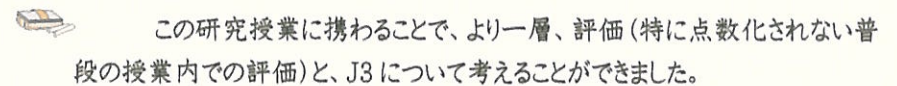 この研究授業に携わることで、より一層、評価(特に点数化されない普
段の授業内での評価)と、J3について考えることができました。